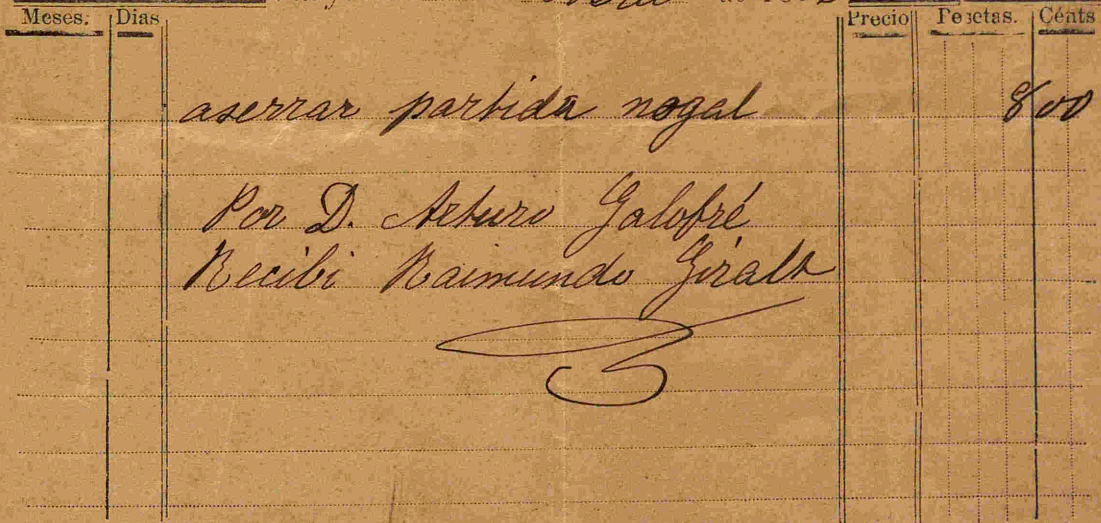 Meses. Dias Precio Pesetas. Cénts
aserrar partida nogal 8 00
Por D. Arturo Galofré
Recibi Raimundo Giralt